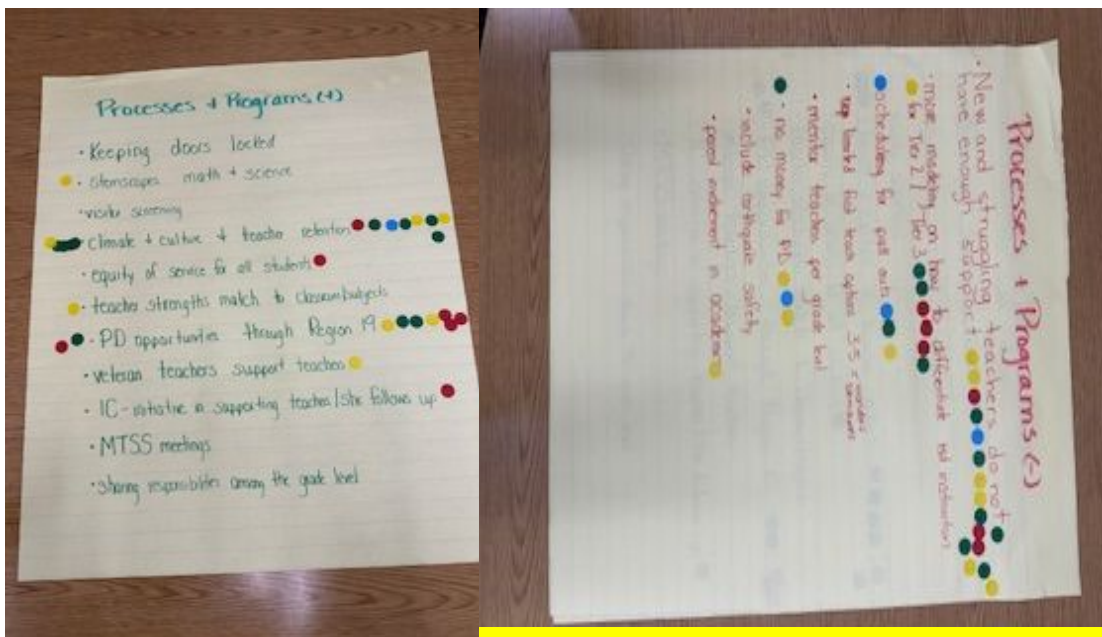 Processes + Programs (+)
• Keeping doors locked
• stemscopes math + science
• visitor screening
climate + culture + teacher retention
• equity of service for all students
• teacher strengths match to classroom/subjects
• PD opportunities through Region 19
• veteran teachers support teachers
• IC - initiative in supporting teacher/she follows up
• MTSS meetings
• sharing responsibilities among the grade level
Processes + Programs (-)
• New and struggling teachers do not
have enough support
• more modeling on how to differentiate
for Tier 2 / Tier 3
scheduling for pull outs
• mentor teachers per grade level
• no money for PD
• include earthquake safety
• parent involvement in academics